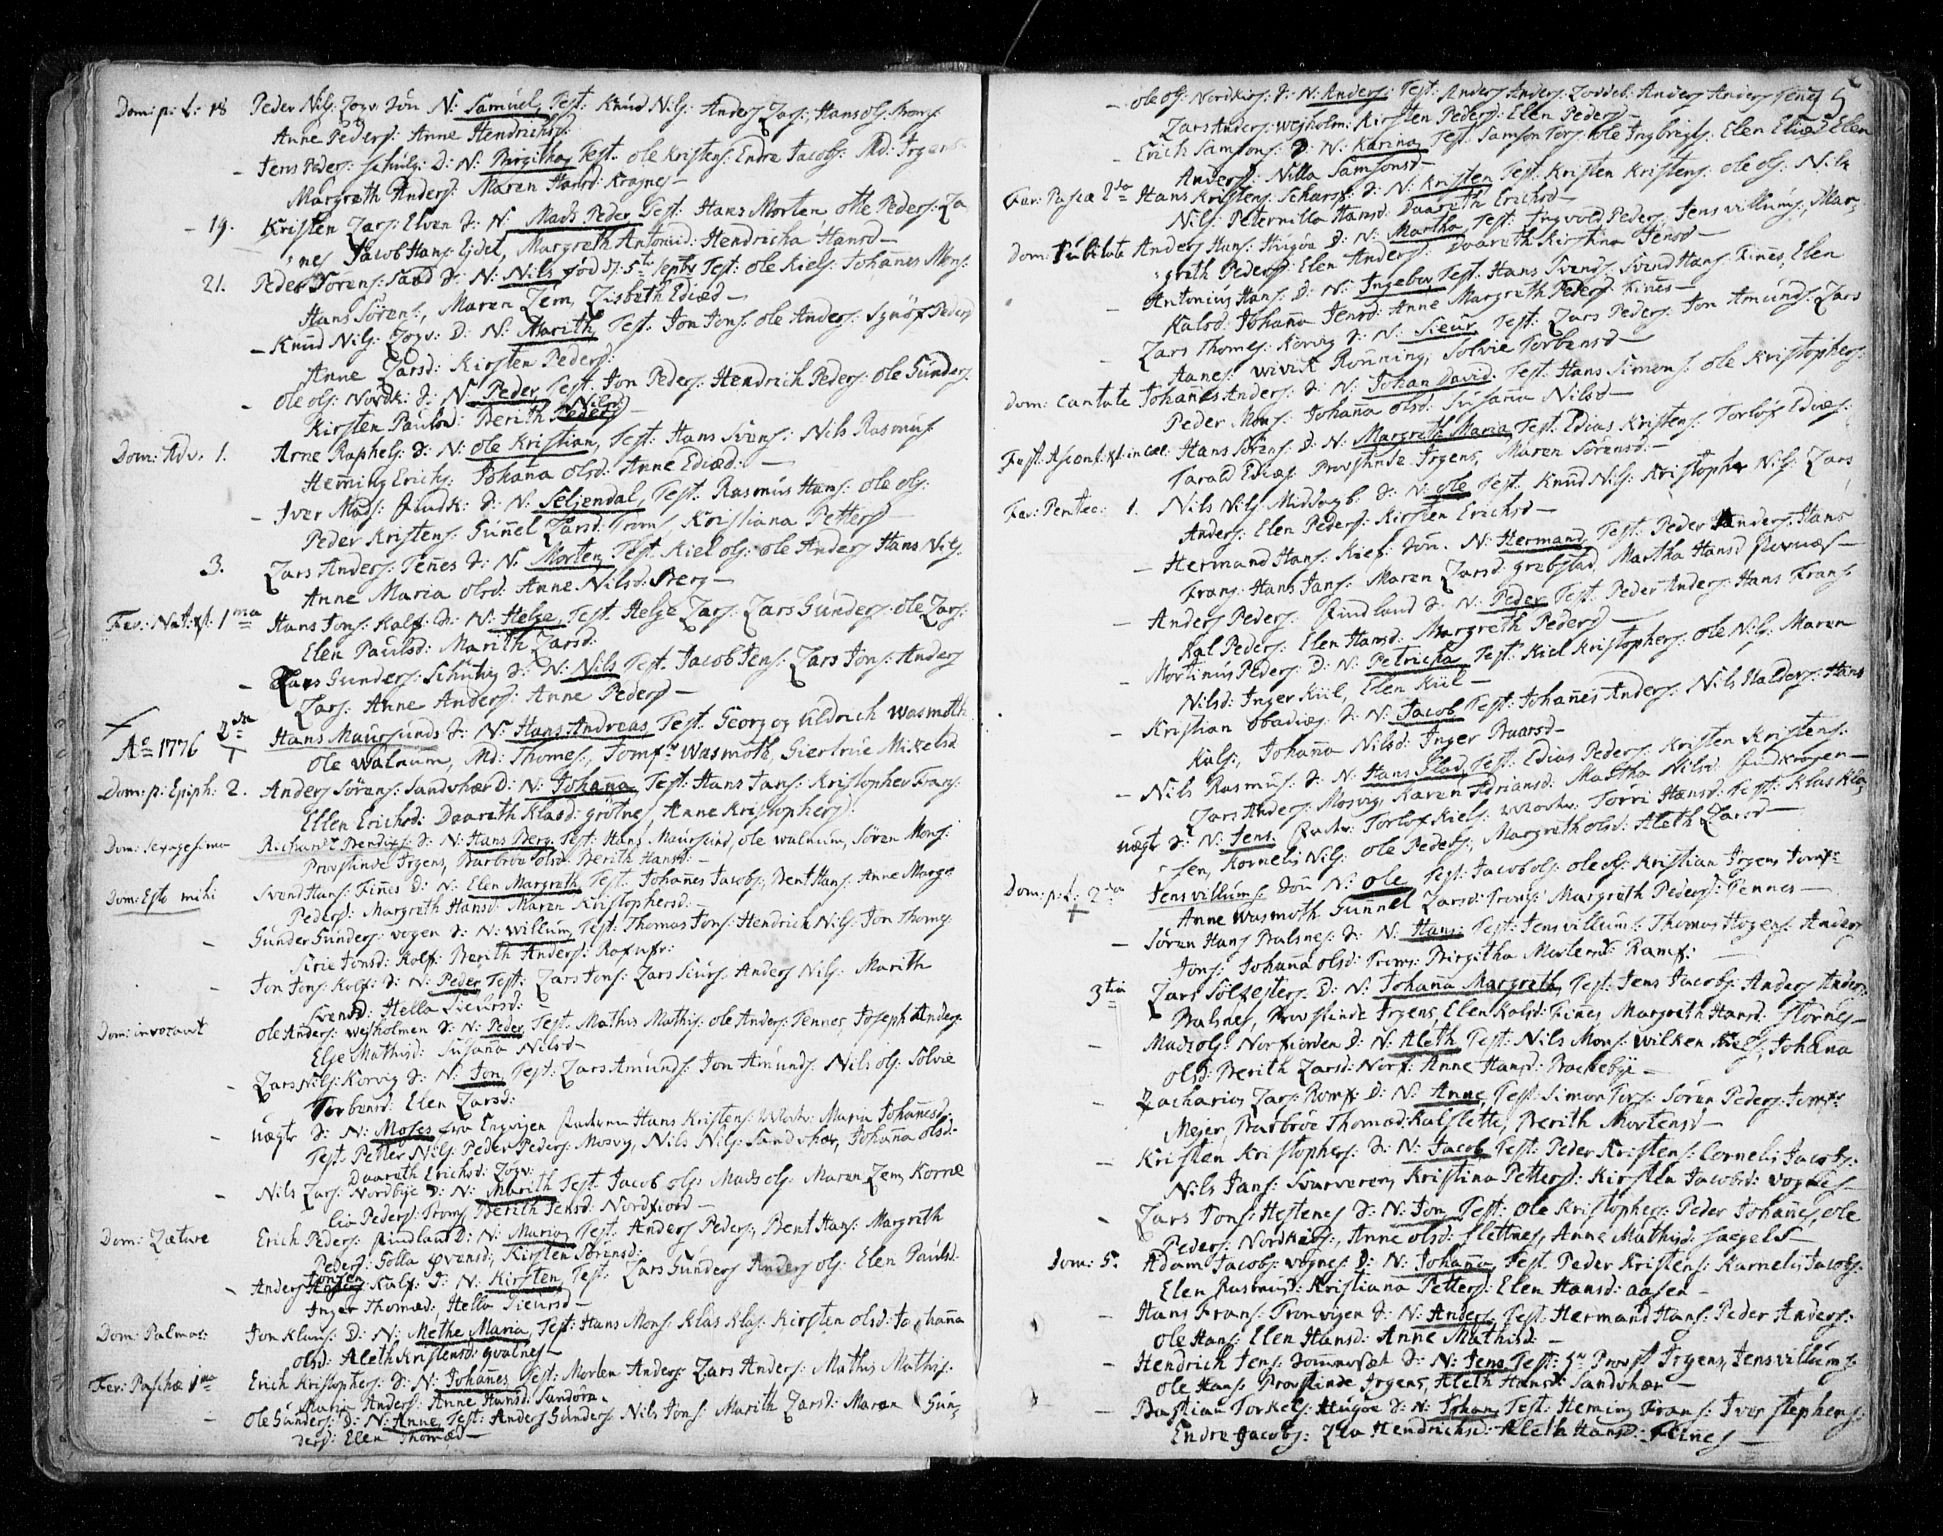 Dom: p: t: 18 Peder Nils: Søn N: Samuel, Test. Knud Nils: Anders Lars: Hans Ols:
Anne Peders: Anne Hendrichs:
- Jens Peders: D: N: Birgitha, Test. Ole Kristens: Endre Jacobs: Md: Irgens
Margreth Anders: Maren Hansd: Kragnes -
- 19. Kristen Lars: Elven S: N: Mads Peder Test: Hans Morten Otte Peders: La
nes Jacob Hans: Margreth Antonid: Hendricha Hansd -
21. Peder Sörens: Sand S: N: Nils fød d. 5te Septbr Test: Ole Kiels: Johañes Mons:
Hans Sörens:, Maren Lem, Lisbeth Ediæd -
- Knud Nils: D: N: Marith, Test. Jon Jons: Ole Anders: Synöf Peders
Anne Larsd: Kirsten Pedersd:
- Ole Ols: Nordk: S: N: Peder Test: Jon Peders: Hendrich Peders: Ole Gunders:
Kirsten Paulsd: Berith Nilsd
Dom: Adv. 1. Arne Raphels: S: N: Ole Kristian, Test: Hans Svens: Nils Rasmus:
Heming Erichs: Johaña Olsd: Anne Ediæd: -
- Iver Mads: S: N: Seljendal, Test. Rasmus Hans: Ole Ols:
Peder Kristens: Guñel Larsd: Troms Kristiana Petters
3. Lars Anders: Teñes S: N: Morten, Test. Kiel Ols: Ole Anders Hans Nils:
Anne Maria Olsd: Anne Nilsd: Berg -
Fer: Nat: xti 1ma Hans Jons: Kalf: S: N: Helge, Test. Helge Lars: Lars Gunders: Ole Lars:
Elen Paulsd: Marith Larsd:
- Lars Gunders: S: N: Nils Test. Jacob Jens: Lars Jons: Anders
Lars: Anne Anders: Anne Peders -
Ao 1776 2da Hans Maursunds S: N: Hans Andreas Test. Georg og Uldrich Wasmoth
Ole Walnum, Md: Thomes:, Jomfr Wasmoth, Giertrue Mikelsd
Dom: p: Epiph: 2. Anders Sörens: Sandvhær D: N: Johaña, Test: Hans Jans: Kristopher Frans:
Ellen Erichsd: Daarath Klasd: grötnes, Anne Kristophers:
Dom: Sexagesima Richardt Bendix: S: N: Hans Berg, Test: Hans Maursund, Ole Walnum, Sören Mons:
Provstinde Irgens, Barbroe Olsd: Berith Hansd: -
Dom: Esto mihi Svend Hans: Fiñes D: N: Elen Margreth Test. Johañes Jacobs:, Bent Hans: Anne Margr
Peders: Margreth Hansd: Maren Kristophersd: -
- Gunder Gunders: Vogen S: N: Willum, Test: Thomas Jons: Hendrich Nils: Jon Thomes:
Sirie Jonsd: Kolf: Berith Anders:
- Jon Jons: Kalf: S: N: Peder Test: Lars Jons: Lars Siurs: Anders Nils: Marith
Svensd: Hella Siursd:
Dom: invocavit Ole Anders: Wesholmen S: N: Peder Test. Mathis Mathis: Ole Anders: Tennes, Joseph Anders:
Else Mathisd: Susaña Nilsd -
- Lars Nils: Korvig S: N: Jon, Test: Lars Amunds: Jon Amunds: Nils Ols: Solvie
Torbensd: Elen Larsd:
- uægte S: N: Moses fra Engvigen Hans Kristens: Maria Johañesd:
Test. Petter Nils: Peder Peders: Mosvg, Nils Nils: Sandvhær, Johaña Olsd:
Daarath Erichsd:
- Nils Lars: Nordbye D: N: Marith Test. Jacob Ols: Mads Ols: Maren Lem, Korne
lia Peders: Troms Berith Jensd: Nordfiord -
Dom: Lætare Erich Peders: Rindland D: N: Maria, Test. Anders Peders:, Bent Hans: Margreth
Pedersd: Golla Kirsten Sörensd:
- Anders Jonsen Kalf: D: N: Kirsten, Test: Lars Gunders Anders Ols: Elen Paulsd:
Inger Thomæd: Hella Sieursd -
Dom: Palmar: Jon Klaus: D: N: Methe Maria, Test: Hans Mons: Klas Klas: Kirsten Olsd: Johaña
Olsd: Aleth Kristensd: Qvalnes -
Fer: Paschæ 1ma Erich Kristophers: S: N: Johañes Test: Morten Anders: Lars Anders: Mathis Mathis:
Maria Anders: Anne Hansd: Sandøra
- Ole Gunders: D: N: Anne Test: Anders Gunders Nils Jons: Marith Larsd: Maren Gun:
dersd: Elen Thomæd -
5
- Ole Ols: Nordkios: S: N: Anders: Test: Anders Anders: Anders Anders: Tenes
Lars Anders: Wesholm: Kirsten Peders: Elen Peders -
- Erich Samsons: D: N: Karina, Test. Samson Tors: Ole Ingbrigts: Elen Eliæd Elen
Anders: Nilla Samsonsd -
Fer: Pascæ 2da Hans Kristens: S: N: Kristen Test: Kristen Kristens: Ole Ols: Nils
Nils: Peternilla Hansd: Daarath Erichsd -
Dom: Jubilate Anders Hans: D: N: Martha Test: Ingvold Peders: Jens Villums:, Mar-
greth Peders: Elen Anders: Daarath Kirstina Jensd -
- Antonius Hans: D: N: Ingebor Test. Hans Svends: Svend Hans: Fiñes, Elen
Kalsd: Johaña Jensd: Anne Margreth Peders: Fiñes -
- Lars Thomes: Korvig S: N: Sieur, Test: Lars Peders: Jon Amunds: Lars
Aanes: Wivik Roñning, Solvie Torbensd -
Dom: Cantate Johañes Anders: S: N: Johan David: Test. Hans Simons: Ole Kristophers:
Peder Mons: Johaña Olsd: Susaña Nilsd -
Fest: Ascens: xt in cæl: Hans Sörens: D: N: Margreth Maria, Test. Edias Kristens: Torlöf Ediæs:
Tarald Ediæs: Provstinde Irgens, Maren Sörensd: -
Fer: Pentec: 1. Nils Nils: S: N: Ole Test. Knud Nils: Kristopher Nils: Lars
Anders: Elen Peders: Kirsten Erichsd -
- Hermand Hans: Kief: Søn. N: Hermand, Test: Peder Anders: Hans
Frans: Hans Jans: Maren Larsd: grebstad, Martha Hansd
- Anders Peders: Rindland S: N: Peder Test. Peder Anders: Hans Frans:
Kal Peders: Elen Hansd: Margreth Peders -
- Mortinus Peders: D: N: Petricha, Test: Kiel Kristophers: Ole Nils: Maren
Nilsd: Inger Kiil, Elen Kiil -
- Kristian Obadiæs: S: N: Jacob, Test. Johañes Anders: Nils Halders: Hans
Kals:, Johaña Nilsd: Inger Baarsd -
- Nils Rasmus: S: N: Hans Test. Edias Peders: Kristen Kristens:
Lars Anders: Mosvg, Karen Adriansd: Martha Nilsd:
uægte S: N: Jens, Torlof Kiels: Torri Hansd: Test: Klas Kla
sen, Kornelis Nils: Ole Peders: Margreth Olsd: Aleth Larsd -
Dom: p: t: 2da Jens Villums: Søn N: Ole, Test: Jacob Ols: Ole Ols: Kristian Irgens, Jomfr
Anne Wasmoth Gunnel Larsd: Troms: Margreth Peders: Tennes -
- Sören Hans Balsnes: S: N: Hans: Test: Jens Villums: Thomas Anders
Jons: Johaña Olsd: Troms: Birgitha Mortensd: Ramf:
3tia Lars Sölfesters: D: N: Johaña Margreth, Test: Jens Jacobs: Anders Anders:
Balsnes, Provstinde Irgens, Elen Kalsd: Fiñes, Margreth Hansd: Störnes -
- Mads Ols: Norfiorden D: N: Aleth, Test: Nils Mons: Wilken Johaña
Olsd: Berith Larsd: Norf: Anne Hansd: Backebye -
- Zacharias Lars: Romf: D: N: Anne, Test: Simon Tors: Sören Peders: Jomfr
Meyer, Barbroe Thomæd: Kalslette, Berith Mortensd -
- Kristen Kristophers: S: N: Jacob, Test: Peder Kristens: Cornelis Jacobs:
Nils Jans: Svarveren, Kristina Petters: Kirsten Jacobsd: Vognes -
- Lars Jons: Hestenes S: N: Jon, Test: Ole Kristophers: Peder Johañes, Ole
Peders: Nordkios:, Anne Olsd: Slettnes, Anne Mathisd:
Dom: 5. Adam Jacobs: Vognes D: N: Johaña, Test. Peder Kristens: Kornelis Jacobs:
Elen Rasmusd: Kristiana Petters: Elen Hansd: Aasen -
- Hans Frans: Tronvigen S: N: Anders, Test: Hermand Hans: Peder Anders:
Ole Hans: Elen Hansd: Anne Mathisd: -
- Hendrich Jens: S: N: Jens Test: Hr Provst Irgens, Jens Villums:
Ole Hans: Provstinde Irgens, Aleth Hansd: Sandvhær -
- Bastian Torkels: S: N: Johan, Test: Heming Frans: Iver Stephens:
Endre Jacobs: Hendrichsd: Aleth Hansd: Fiñes -